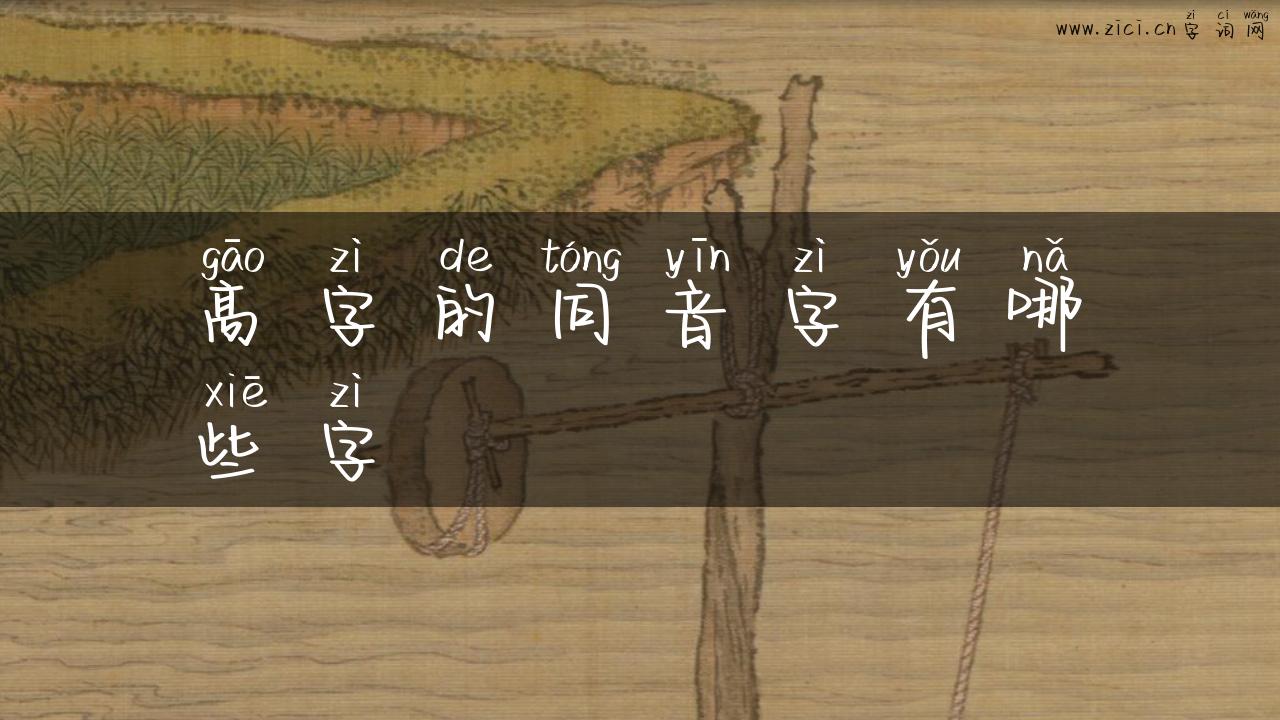 zì cí wǎng
www.zici.cn 字 词 网
gāo zì de tóng yīn zì yǒu nǎ
高 字 的 同 音 字 有 哪
xiē zì
些 字